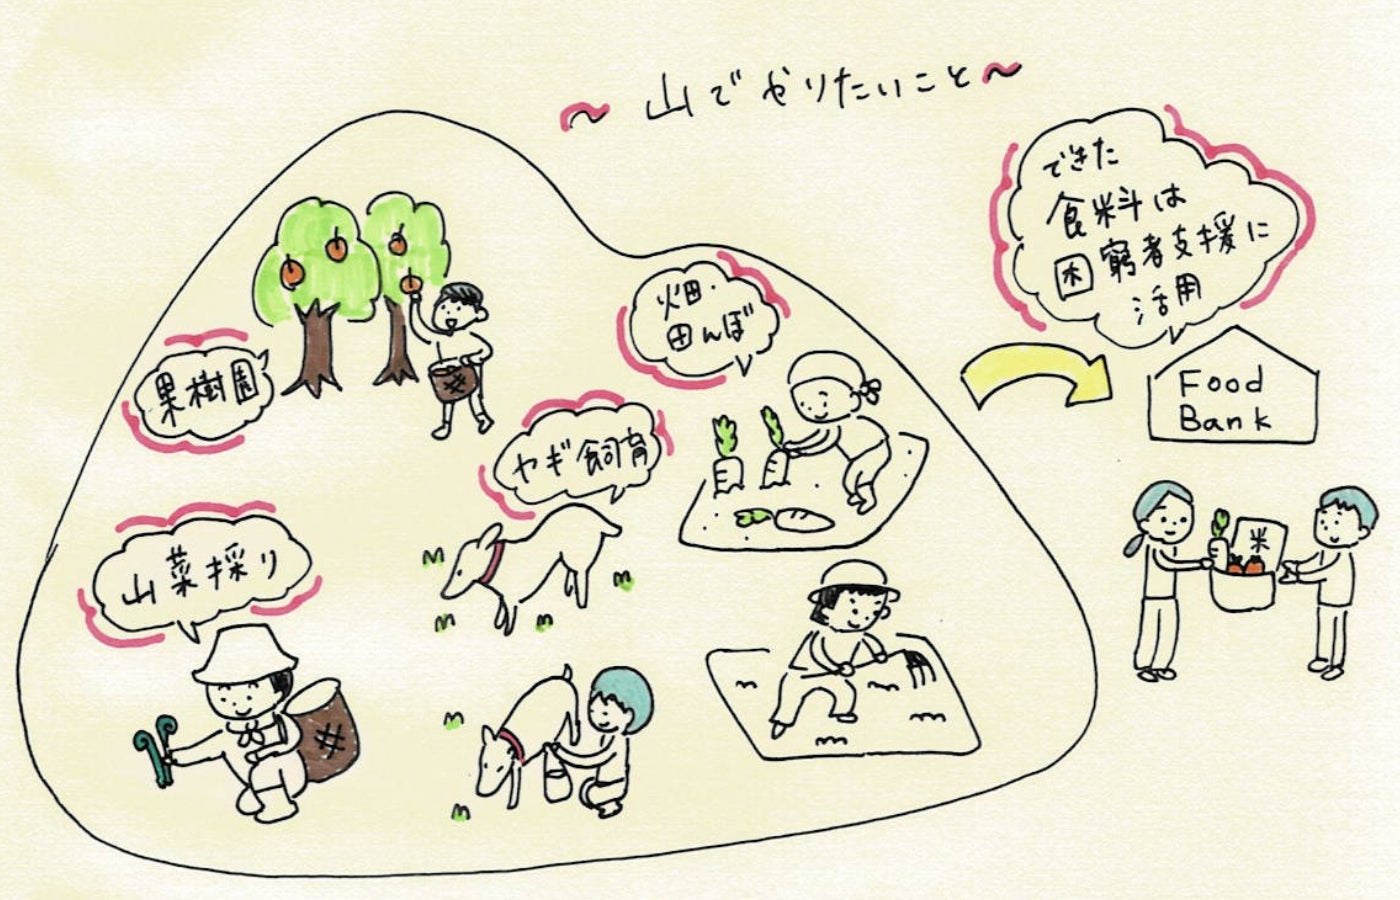 ～山でやりたいこと～
できた
食料は
困窮者支援に
活用
Food
Bank
畑・
田んぼ
果樹園
ヤギ飼育
山菜採り
米